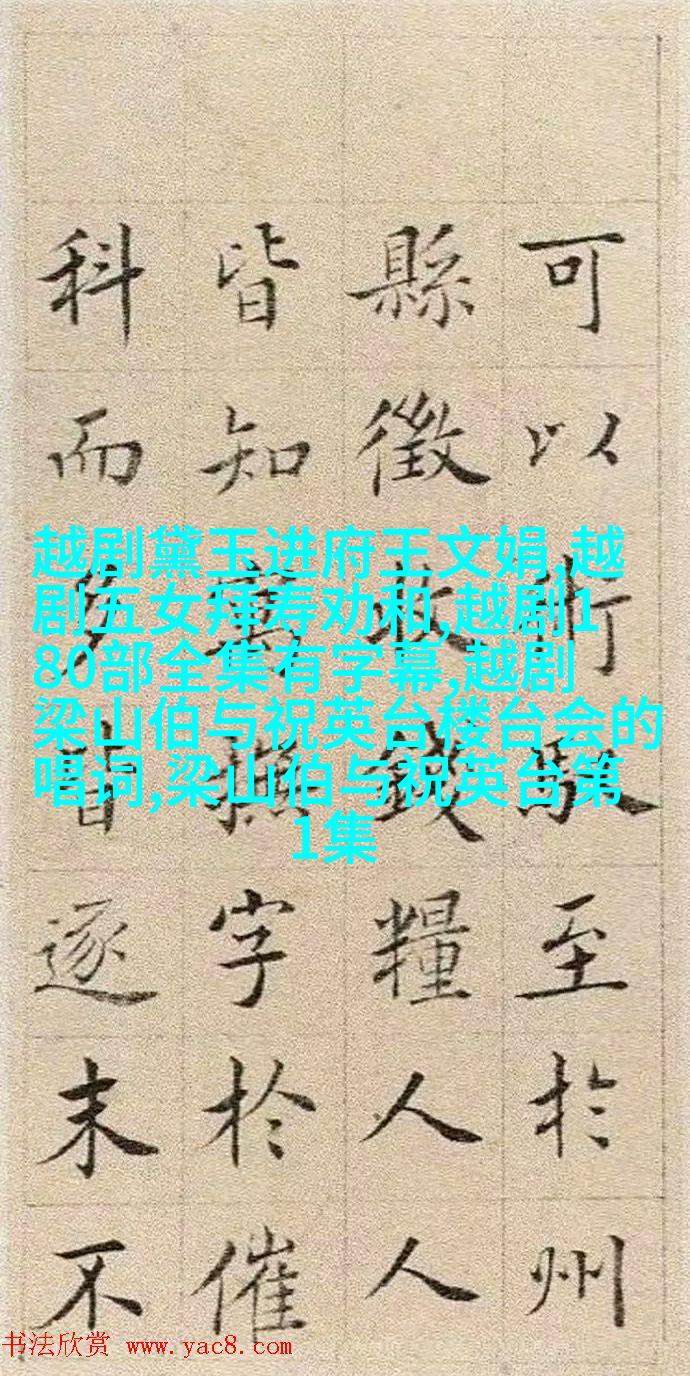 可以術馭至於州
縣徵收錢糧人人
皆知寓撫字於催
科而皆逐末不
越剧黛玉进府王文娟,越
剧五女拜寿劝和,越剧1
80部全集有字幕,越剧
梁山伯与祝英台楼台会的
唱词,梁山伯与祝英台第
1集
书法欣赏 www.yac8.com